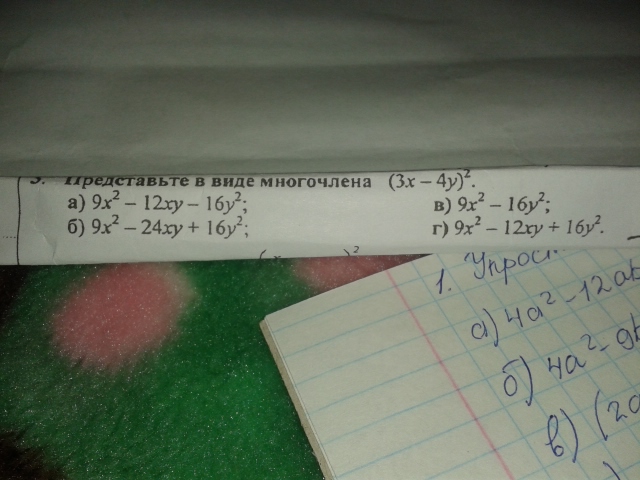 3. Представьте в виде многочлена (3x – 4y)².
а) 9x² – 12xy – 16y²;
в) 9x² – 16y²;
б) 9x² – 24xy + 16y²;
г) 9x² – 12xy + 16y².
1. Упрос
а) 4a² - 12ab
б) 4a² - 9b
в) (2a